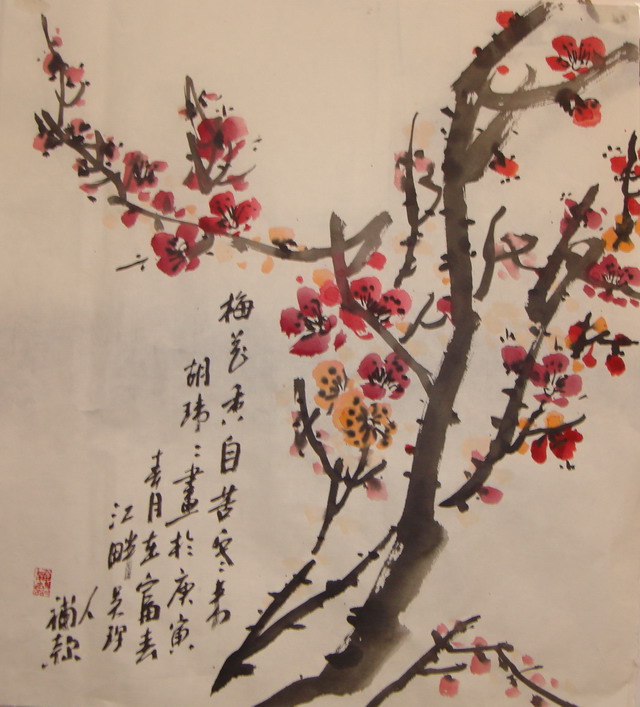 梅花香自苦寒来
胡瑋瑋畫於庚寅
春月在富春
江畔吴
人補款